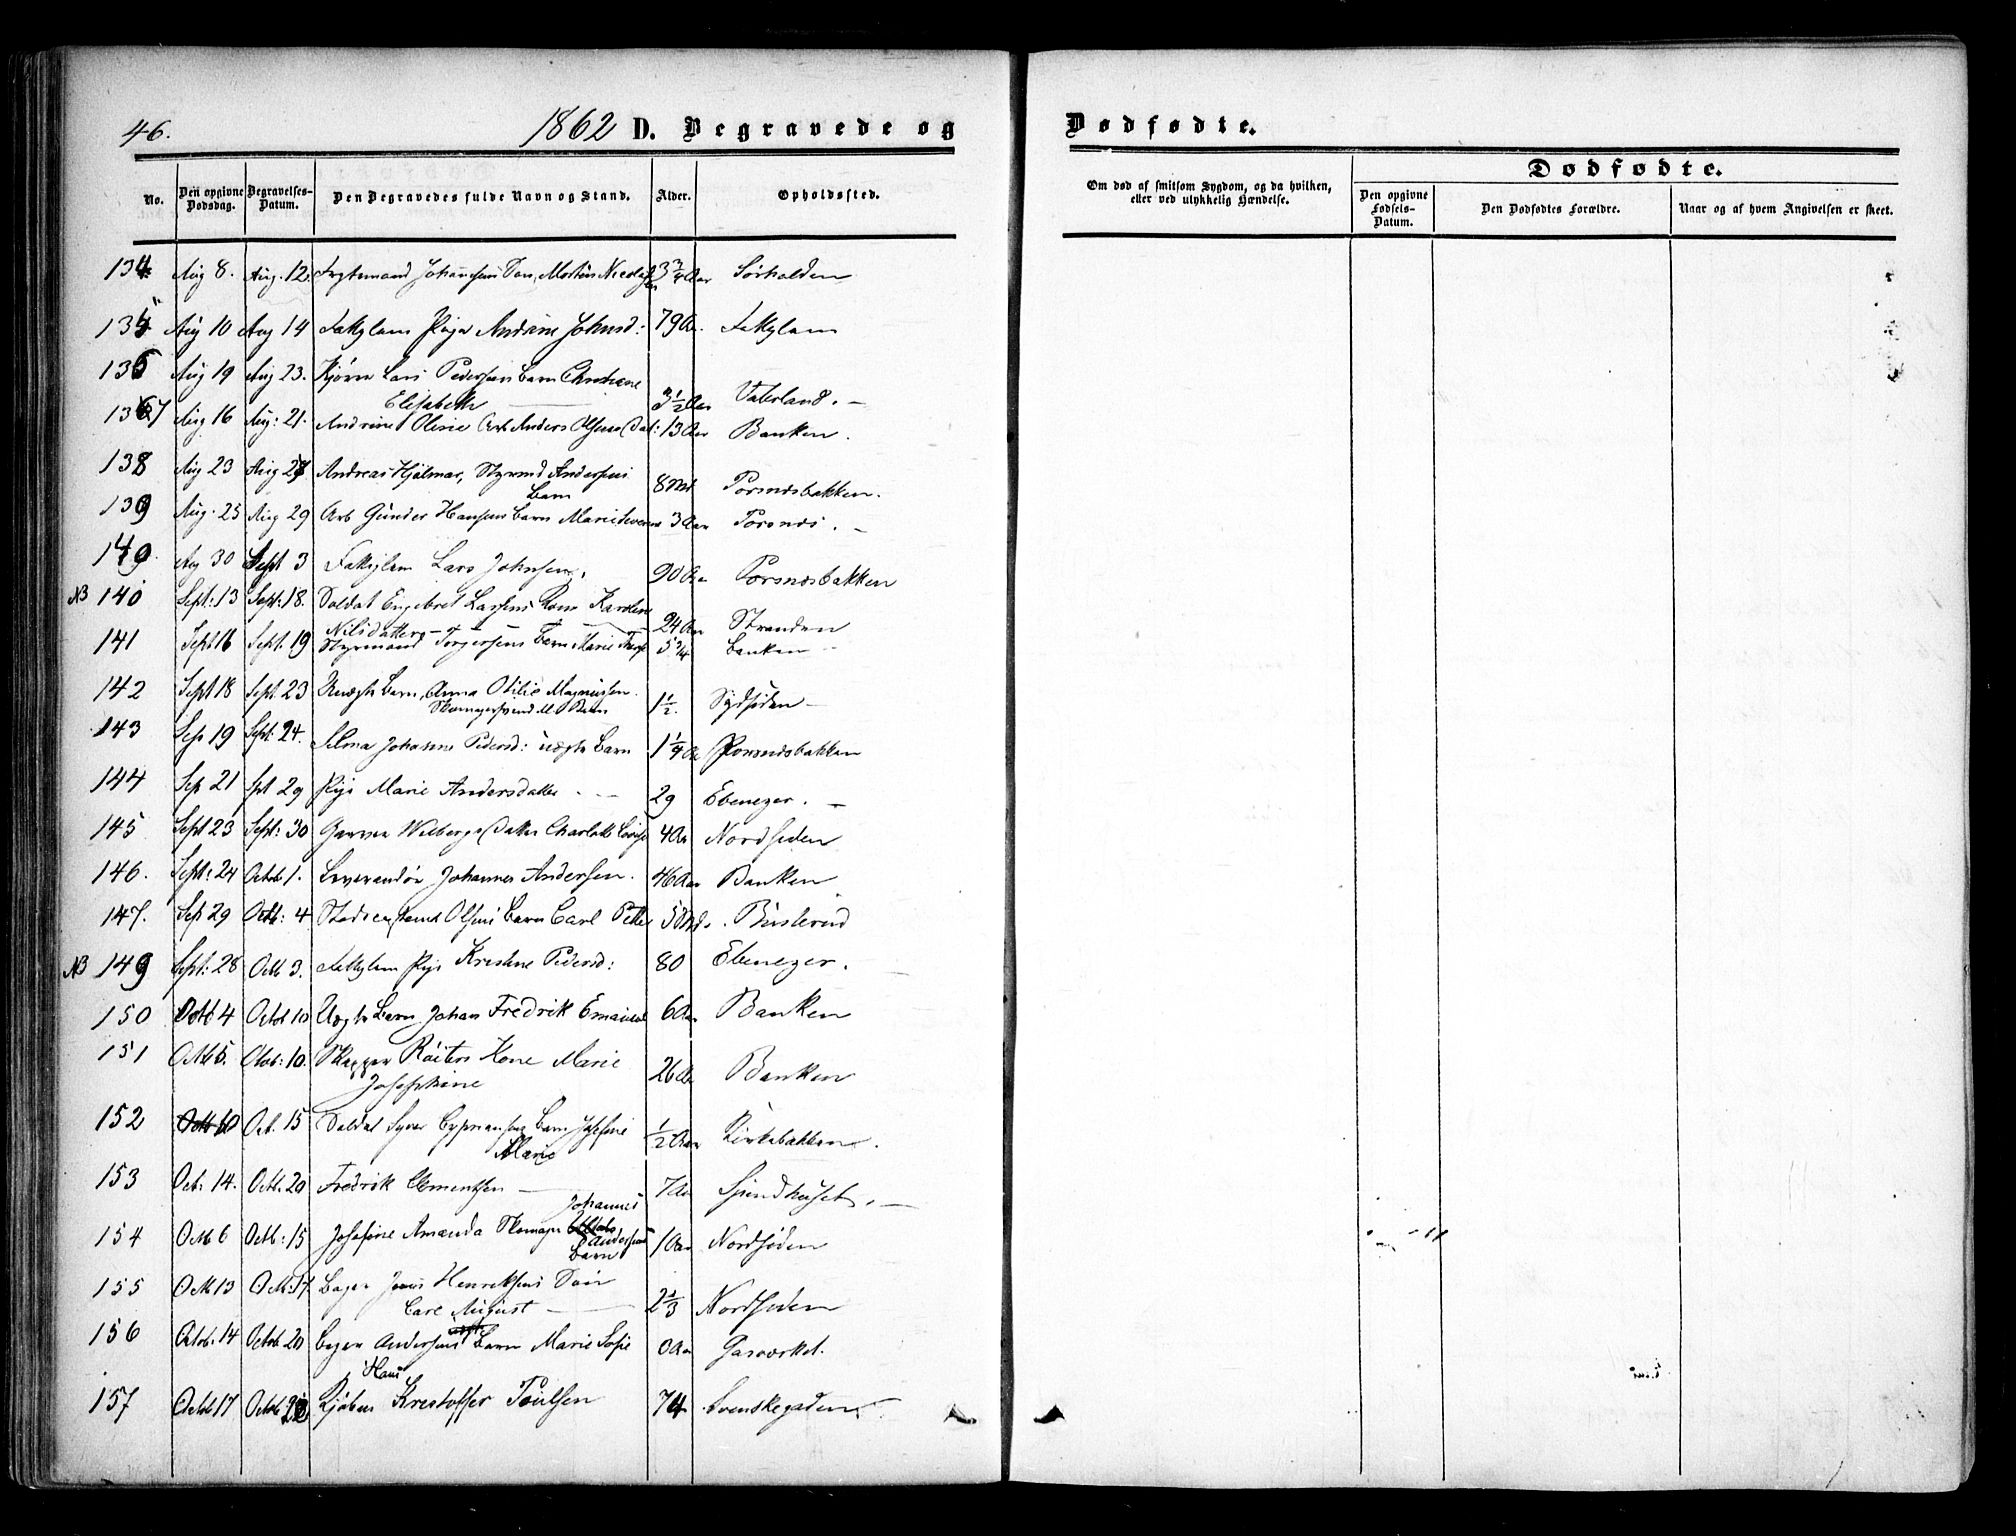 46.
1862 D. Begravede og Dødfødte.
No. Den opgivne Dødsdag. Begravelses-Datum. Den Begravedes fulde Navn og Stand. Alder. Opholdssted.
Om død af smitsom Sygdom, og da hvilken, eller ved ulykkelig Hændelse. Dødfødte.
Den opgivne Fødsels-Datum. Den Dødfødtes Forældre. Naar og af hvem Angivelsen er skeet.
134 Aug 8. Aug. 12. Johannesens Søn, Morten Nicolai 3 3/4 Aar
135 Aug 10 Aug 14 Fattiglem Pige Andrine Johnsd: 79 Aa. Fattiglem
136 Aug 19 Aug 23. Lars Pedersens Barn Christiane
Elisabeth 3 1/2 Aar Vaterland. —
137 Aug 16 Aug: 21. Andrine Olisie Arb Anders Olsens Dat: 13 Aar Banken.
138 Aug 23 Aug 27 Andreas Hjalmar, Styrmd Andersens
Barn 8 Md Torsnæsbakken.
139 Aug. 25 Aug 29 Arb Günder Hansens Barn Marie Severine 3 Aar Torsnæs. —
149. Aug 30 Sept 3 Fattiglem Lars Johnsen. 90 Aa Torsnæsbakken
NB 140 Sept: 13 Sept: 18. Soldat Engebret Larsens Kone Karoline
Nilsdatter 24 Aar Stranden
141 Sept 16 Sept. 19 Styrmand Torgersens Barn Marie 5 3/4 Banken
142 Sept 18 Sept. 23 Uægte Barn, Anna Otilie Magnussen.
Skomagersvend M. Barn 1 1/2. Sydsiden —
143 Sep 19 Sept. 24. Selma Johanne Pedersd: uægte Barn 1 1/4 Aa Torsnæsbakken
144 Sep 21 Spt 29 Pige Marie Andersdatter 29 Ebenezer. —
145 Sept 23 Sept: 30 Garver Wilbergs Datter Charlotte Lovise 4 Aa Nordsiden
146. Sept: 24 Octob 1. Leverandør Johannes Andersen. 46 Aar Banken
147. Sep 29 Octb: 4 Olsens Barn Carl Petter 5 Md. Buslerud
NB 149 Sept: 28 Octb 3. Fattiglem Pige Kristine Pedersd: 80 Ebenezer.
150 Octb 4 Octob 10 Uægte Barn Johan Fredrik Emanuel 6 Aar Banken
151 Octb 5. Octob: 10. Skipper Röiters Kone Marie
Josephine 26 Aa Banken
152 Octb 10 Oct. 15 Soldat Syver Cypriansens Barn Josefine
Marie 1/2 Aar Kirkebakken.
153 Oct: 14. Octb. 20 Fredrik Clementsen 7 Aa Spindhuset. —
154 Octb 6 Octb: 15 Josefine Amanda Skomager Johannes
Andersens
Barn 1 Aar Nordsiden
155 Octb 13 Octb: 17. Bager Jens Henriksens Søn
Carl August 2 1/3 Nordsiden
156 Octob. 14 Octob. 20 Andersens Barn Marie Sofie 0 Aa Gasværket.
157 Octob 17 Octob 22 Hans
Kristoffer Poulsen 74 Svenskegaden